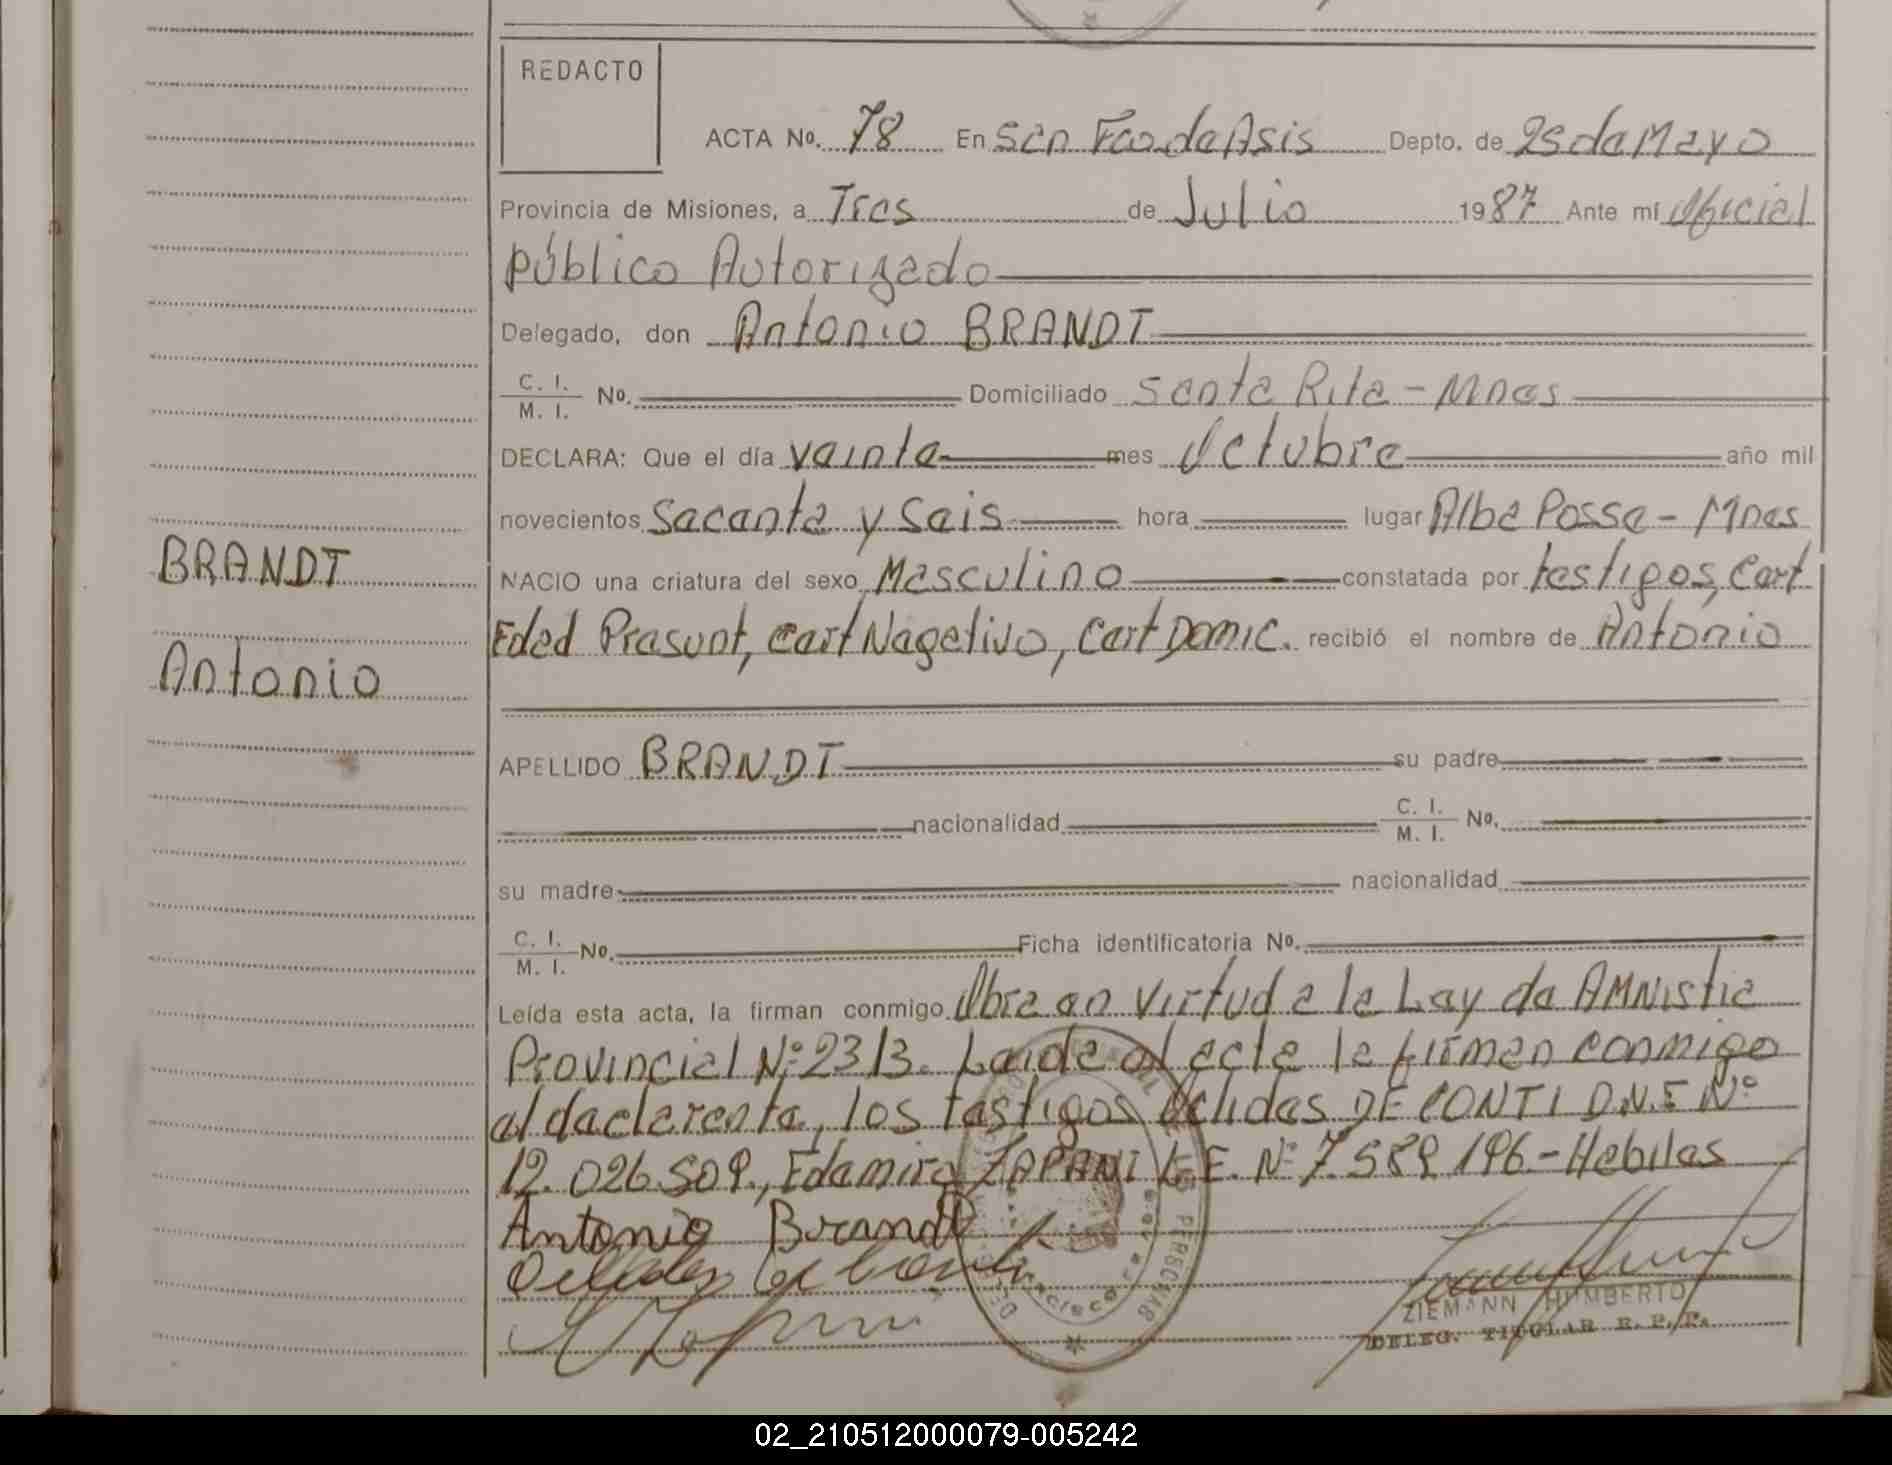 REDACTO
ACTA Nº. 78 En San Fco. de Asis Depto. de 25 de Mayo
Provincia de Misiones, a Tres de Julio 1987 Ante mí Oficial
Público Autorizado
Delegado, don Antonio BRANDT
C. I.
M. I. Nº. Domiciliado Santa Rita - Mnes
DECLARA: Que el día veinte mes Octubre año mil
novecientos sesenta y seis hora lugar Alba Posse - Mnes
BRANDT
NACIO una criatura del sexo Masculino constatada por testigos, Cert
Edad Presunt, Cert Negativo, Cert Domic. recibió el nombre de Antonio
Antonio
APELLIDO BRANDT su padre
nacionalidad C. I.
M. I. Nº.
su madre nacionalidad
C. I.
M. I. Nº. Ficha identificatoria Nº.
Leída esta acta, la firman conmigo Obra en virtud a la Ley de AMNistia
Provincial Nº: 2313. Leida el acta la firman conmigo
el declarente, los testigos Oelidas DE CONTI D.N.E Nº
12.026.509., Edemiro ZAPANI L.E. Nº 7.589.196.- Habiles
Antonio Brandt
ZIEMANN HUMBERTO
DELEG. TITULAR R. P. P.
02_210512000079-005242